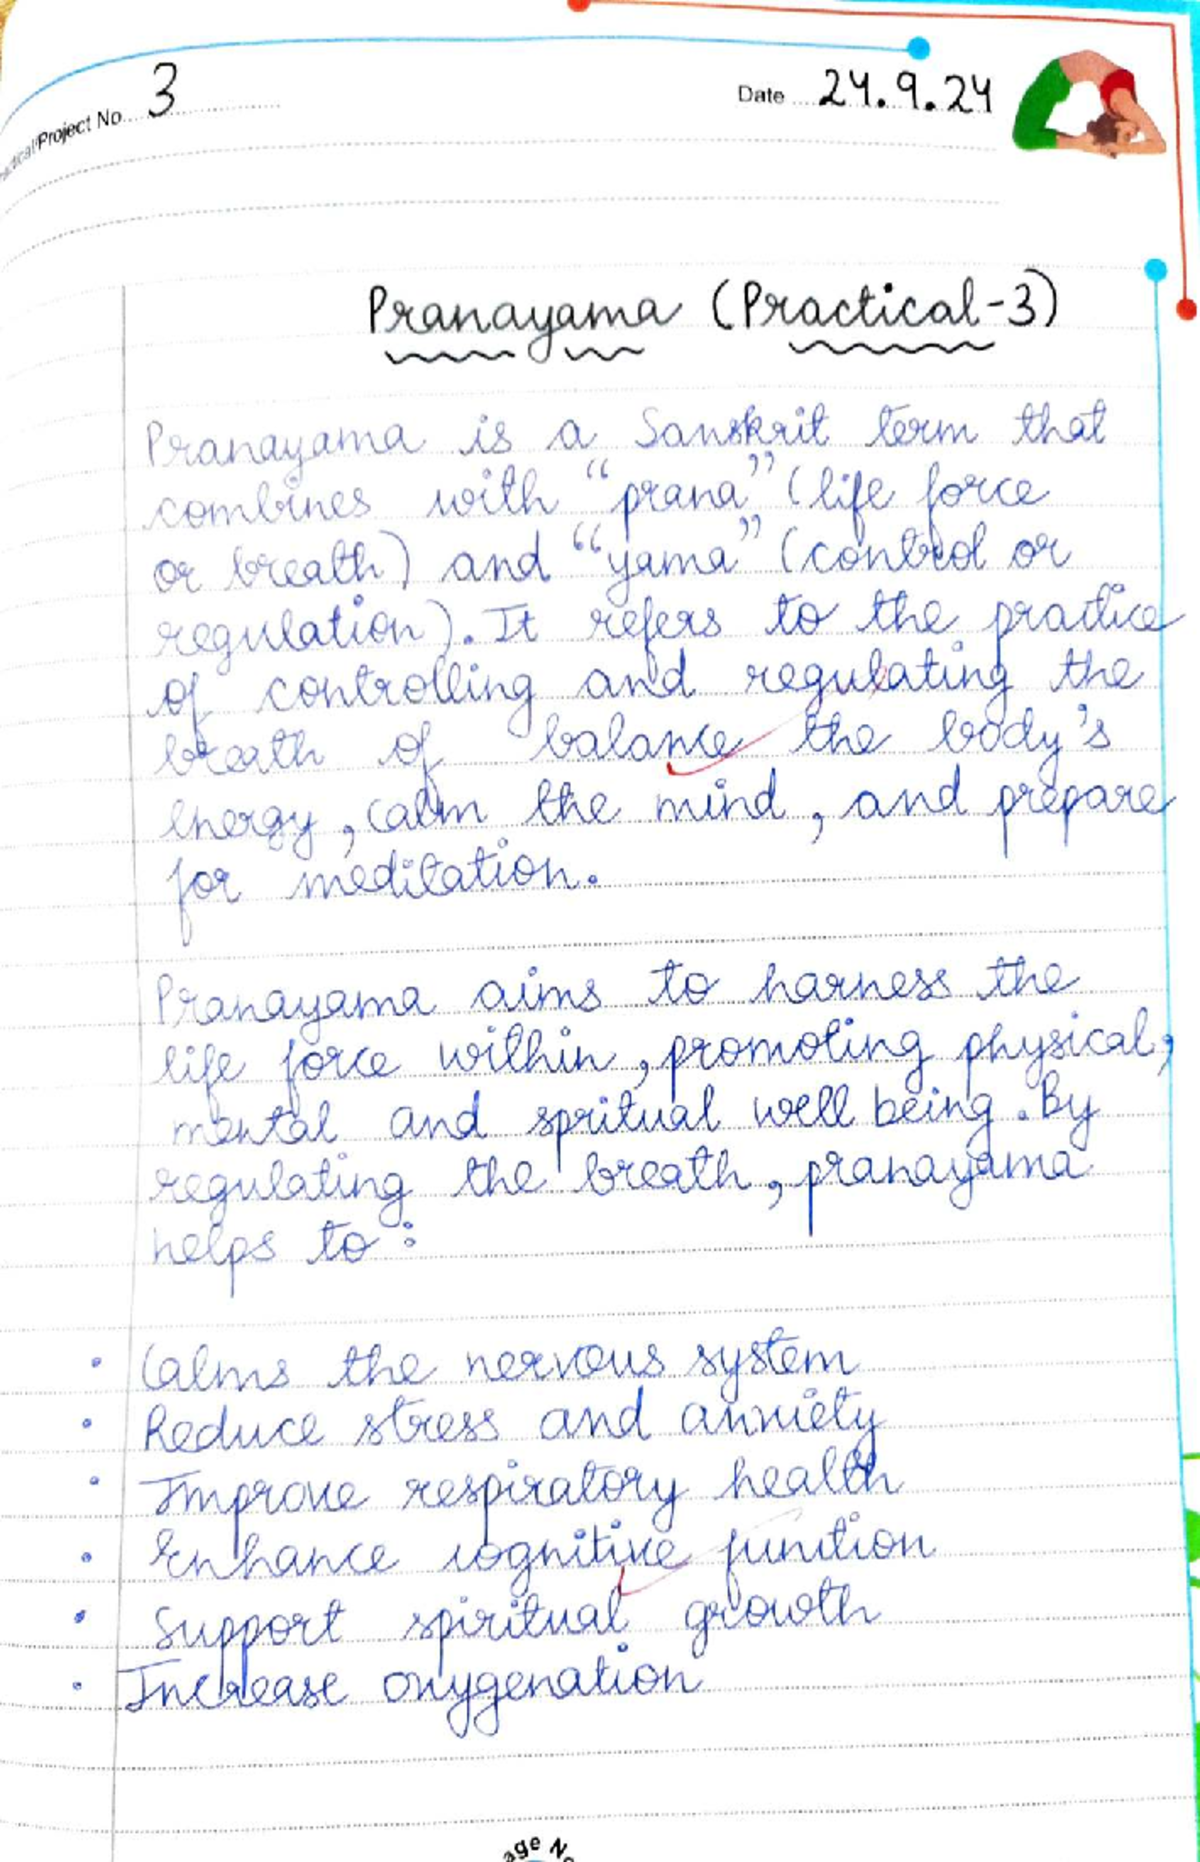 Practical/Project No. 3
Date 24.9.24
Pranayama (Practical-3)
Pranayama is a Sanskrit term that
combines with "prana" (life force
or breath) and "yama" (control or
regulation). It refers to the practice
of controlling and regulating the
breath of balance the body's
energy, calm the mind, and prepare
for meditation.
Pranayama aims to harness the
life force within, promoting physical,
mental and spritual well being. By
regulating the breath, pranayama
helps to:
• Calms the nervous system
• Reduce stress and anxiety
• Improve respiratory health
• Enhance cognitive function
• Support spiritual growth
• Increase oxygenation
age N